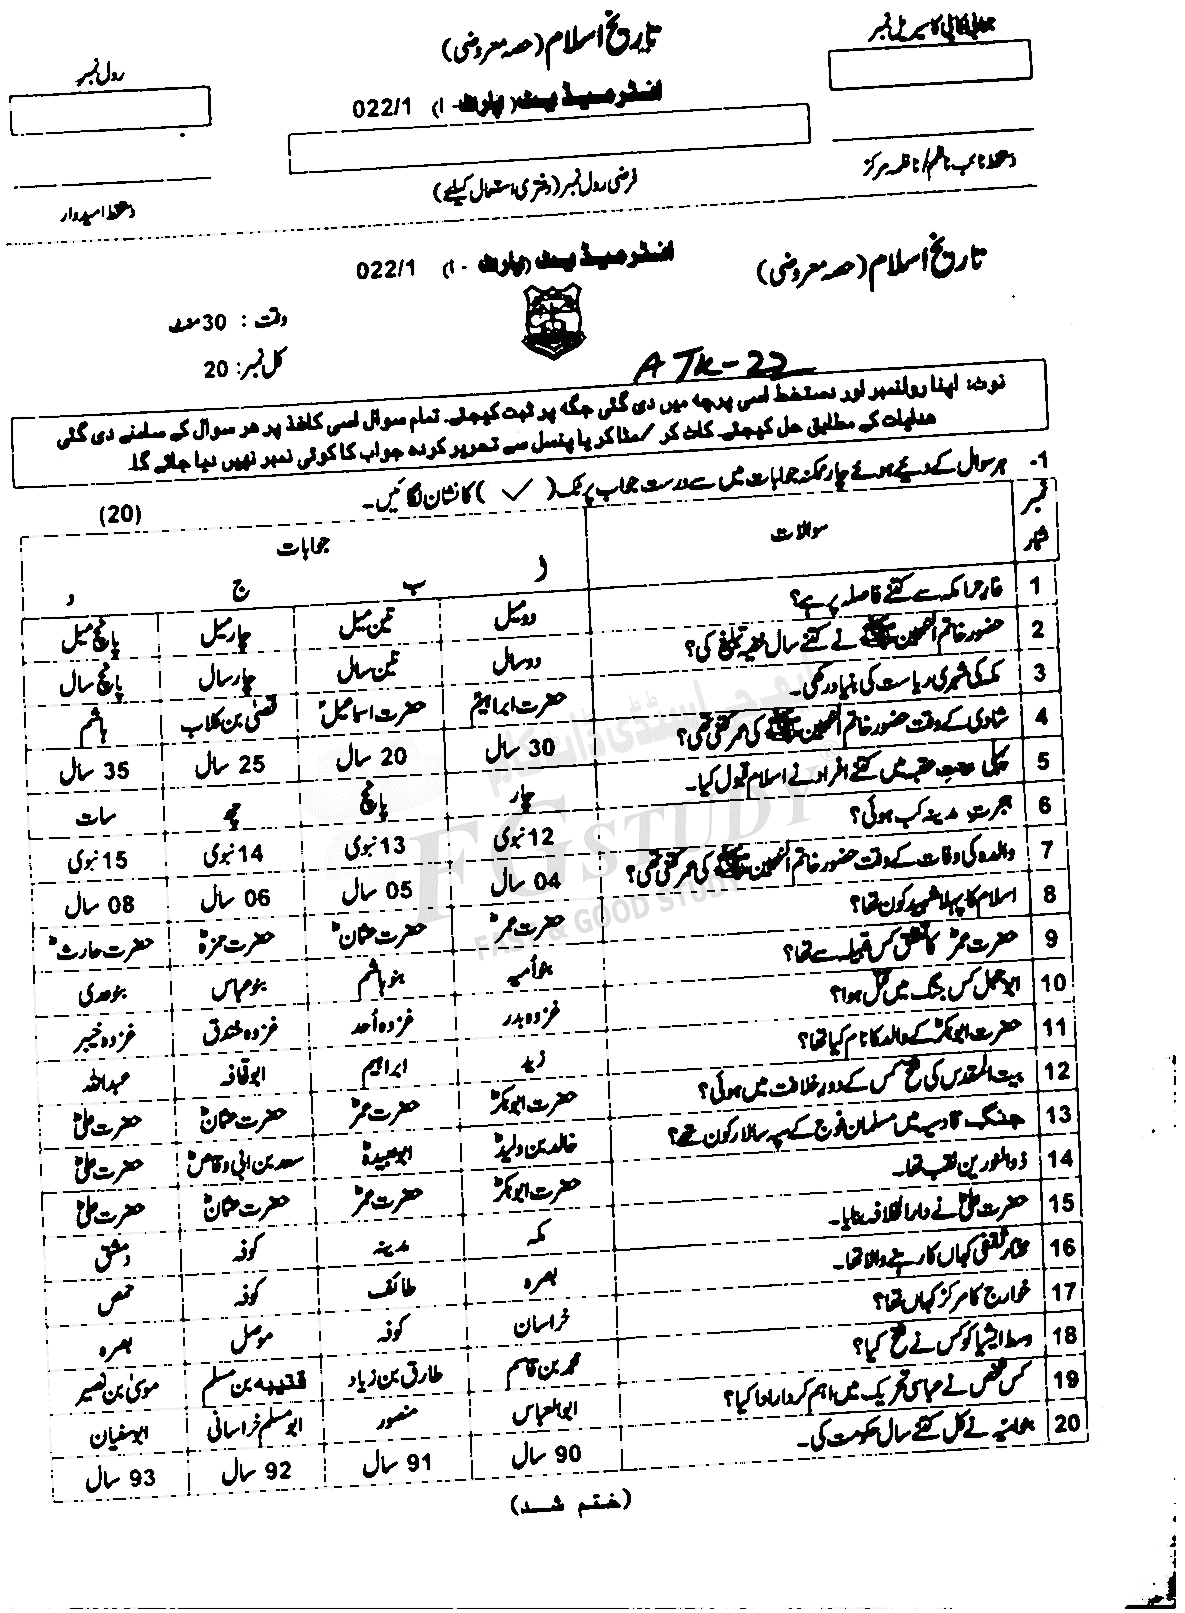 تاریخ اسلام (حصہ معروضی)
جوابی کاپی کا سیریل نمبر
رول نمبر
انٹرمیڈیٹ (پارٹ - I) 022/1
دستخط نائب ناظم/ناظمہ مرکز
فرضی رول نمبر (دفتری استعمال کیلئے)
دستخط امیدوار
تاریخ اسلام (حصہ معروضی)
انٹرمیڈیٹ (پارٹ - I) 022/1
وقت: 30 منٹ
کل نمبر: 20
ATK-22
نوٹ: اپنا رولنمبر اور دستخط اسی پرچہ میں دی گئی جگہ پر ثبت کیجئے۔ تمام سوال اسی کاغذ پر ہر سوال کے سامنے دی گئی
ھدایات کے مطابق حل کیجئے۔ کاٹ کر / مٹا کر یا پنسل سے تحریر کردہ جواب کا کوئی نمبر نہیں دیا جائے گا۔
1- ہر سوال کے دیئے ہوئے چار ممکنہ جوابات میں سے درست جواب پر ٹِک ( ✓ ) کا نشان لگائیں۔ (20)
نمبر شمار سوالات جوابات
ا ب ج د
1 غارِ حرا مکہ سے کتنے فاصلہ پر ہے؟ دو میل تین میل چار میل پانچ میل
2 حضور خاتم النبیین ﷺ نے کتنے سال خفیہ تبلیغ کی؟ دو سال تین سال چار سال پانچ سال
3 مکہ کی شہری ریاست کی بنیاد رکھی۔ حضرت ابراہیمؑ حضرت اسماعیلؑ قصیٰ بن کلاب ہاشم
4 شادی کے وقت حضور خاتم النبیین ﷺ کی عمر کتنی تھی؟ 30 سال 20 سال 25 سال 35 سال
5 پہلی بیعتِ عقبہ میں کتنے افراد نے اسلام قبول کیا۔ چار پانچ چھ سات
6 ہجرتِ مدینہ کب ہوئی؟ 12 نبوی 13 نبوی 14 نبوی 15 نبوی
7 والدہ کی وفات کے وقت حضور خاتم النبیین ﷺ کی عمر کتنی تھی؟ 04 سال 05 سال 06 سال 08 سال
8 اسلام کا پہلا شہید کون تھا؟ حضرت عمرؓ حضرت عثمانؓ حضرت حمزہؓ حضرت حارثؓ
9 حضرت عمرؓ کا تعلق کس قبیلہ سے تھا؟ بنو اُمیہ بنو ہاشم بنو عباس بنو عدی
10 ابو جہل کس جنگ میں قتل ہوا؟ غزوہ بدر غزوہ اُحد غزوہ خندق غزوہ خیبر
11 حضرت ابوبکرؓ کے والد کا نام کیا تھا؟ زید ابراہیم ابو قحافہ عبداللہ
12 بیت المقدس کی فتح کس کے دورِ خلافت میں ہوئی؟ حضرت ابوبکرؓ حضرت عمرؓ حضرت عثمانؓ حضرت علیؓ
13 جنگ قادسیہ میں مسلمان فوج کے سپہ سالار کون تھے؟ خالد بن ولیدؓ ابو عبیدہؓ سعد بن ابی وقاصؓ حضرت علیؓ
14 ذوالنورین لقب تھا۔ حضرت ابوبکرؓ حضرت عمرؓ حضرت عثمانؓ حضرت علیؓ
15 حضرت علیؓ نے دارالخلافہ بنایا۔ مکہ مدینہ کوفہ دمشق
16 مختار ثقفی کہاں کا رہنے والا تھا۔ بصرہ طائف کوفہ حمص
17 خوارج کا مرکز کہاں تھا؟ خراسان کوفہ موصل بصرہ
18 وسط ایشیا کو کس نے فتح کیا؟ محمد بن قاسم طارق بن زیاد قتیبہ بن مسلم موسیٰ بن نصیر
19 کس شخص نے عباسی تحریک میں اہم کردار ادا کیا؟ ابوالعباس منصور ابو مسلم خراسانی ابوسفیان
20 بنو اُمیہ نے کل کتنے سال حکومت کی۔ 90 سال 91 سال 92 سال 93 سال
(ختم شد)
FG STUDY
FAST & GOOD STUDY